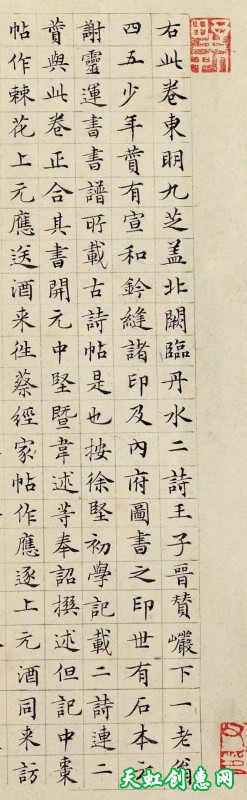 右此卷東明九芝盖北闕臨丹水二詩王子晉賛巗下一老翁
四五少年賛有宣和鈐縫諸印及內府圖書之印世有石本云
謝靈運書書譜所載古詩帖是也按徐堅初學記載二詩連二
賛與此卷正合其書開元中堅暨韋述等奉詔撰述但記中棗
帖作棘花上元應送酒来徃蔡經家帖作應逐上元酒同来訪
天虹创意网